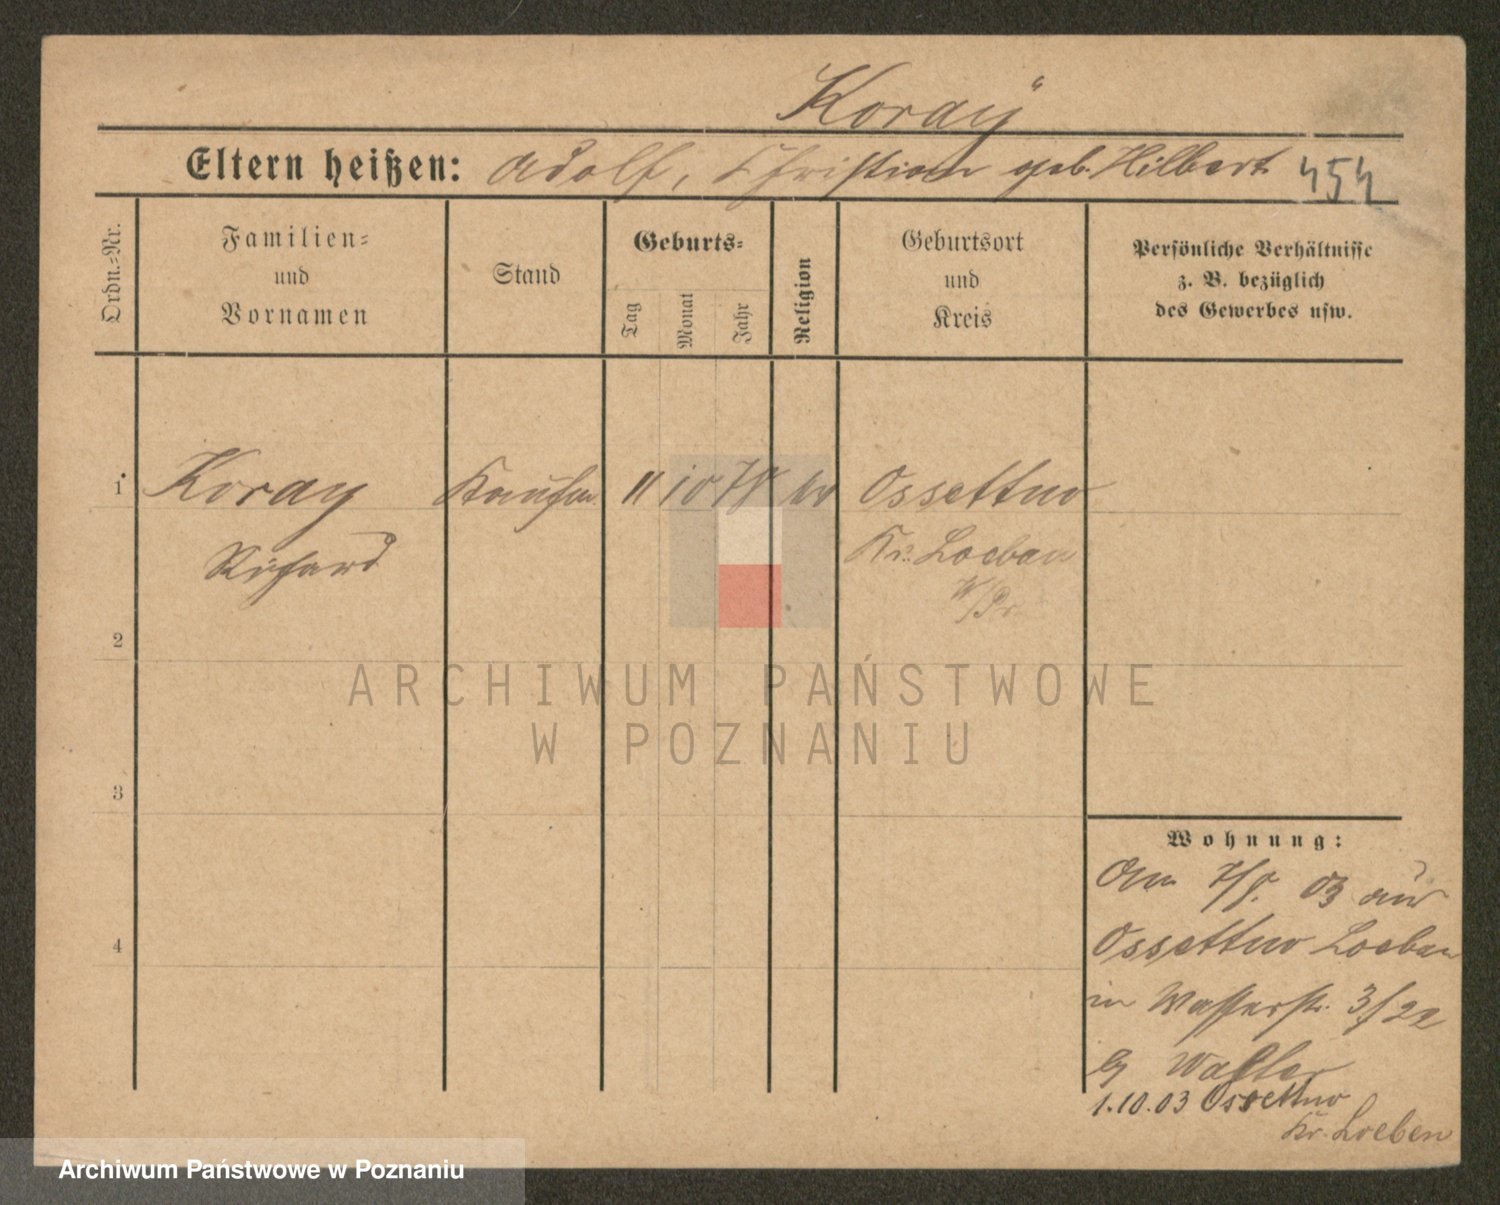 Koraÿ
Eltern heißen: Adolf, Christian geb. Hilbert 454
Ordn.=Nr.
Familien=
und
Vornamen
Stand
Geburts=
Tag
Monat
Jahr
Religion
Geburtsort
und
Kreis
Persönliche Verhältnisse
z. B. bezüglich
des Gewerbes usw.
1 Koray Kaufm. 11 10 78 ev Ossettno
Richard Kr. Loebau
W/Pr.
2
3
4
Wohnung:
Am 7/8. 03 aus
Ossettno Loebau
in Wasserstr. 3/22
b/ Walter
1.10.03 Ossettno
Kr. Loeben
ARCHIWUM PAŃSTWOWE
W POZNANIU
Archiwum Państwowe w Poznaniu